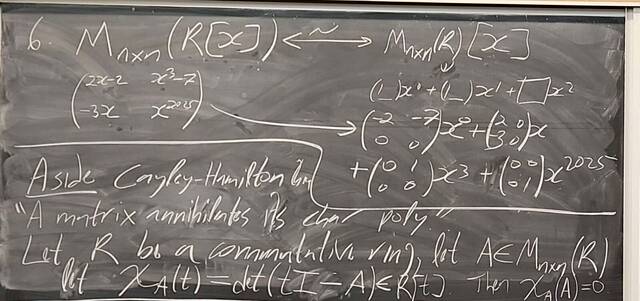 6. M_{n×n}(R[x]) ⟷^{~} M_{n×n}(R)[x]
(2x-2 x^3-7
-3x x^{2025})
(_)x^0 + (_)x^1 + □x^2
→ (-2 -7
0 0)x^0 + (2 0
3 0)x
+ (0 1
0 0)x^3 + (0 0
0 1)x^{2025}
Aside Cayley-Hamilton
"A matrix annihilates its char poly."
Let R be a commutative ring, let A∈M_{n×n}(R)
let χ_A(t) = det(tI - A) ∈ R[t]. Then χ_A(A)=0